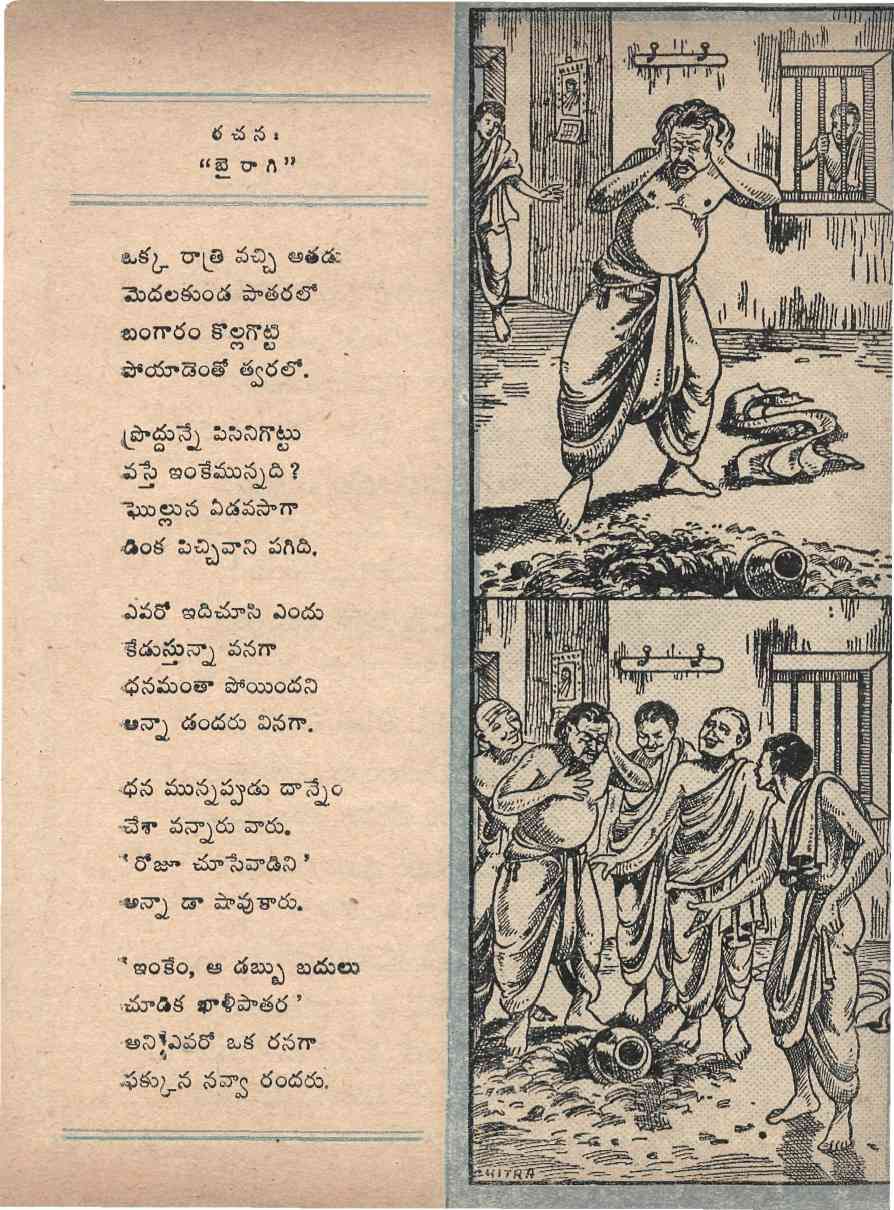 రచన:
“బైరాగి”
ఒక్క రాత్రి వచ్చి అతడు
మెదలకుండ పాతరలో
బంగారం కొల్లగొట్టి
పోయాడెంతో త్వరలో.
ప్రొద్దున్నే పిసినిగొట్టు
వస్తే ఇంకేమున్నది?
ఘొల్లున ఏడవసాగా
డింక పిచ్చివాని పగిది.
ఎవరో ఇదిచూసి ఎందు
కేడుస్తున్నా వనగా
ధనమంతా పోయిందని
అన్నా డందరు వినగా.
ధన మున్నప్పుడు దాన్నేం
చేశా వన్నారు వారు.
‘రోజూ చూసేవాడిని’
అన్నా డా షావుకారు.
‘ఇంకేం, ఆ డబ్బు బదులు
చూడిక ఖాళీపాతర’
అని ఎవరో ఒక రనగా
ఫక్కున నవ్వా రందరు.
CHITRA